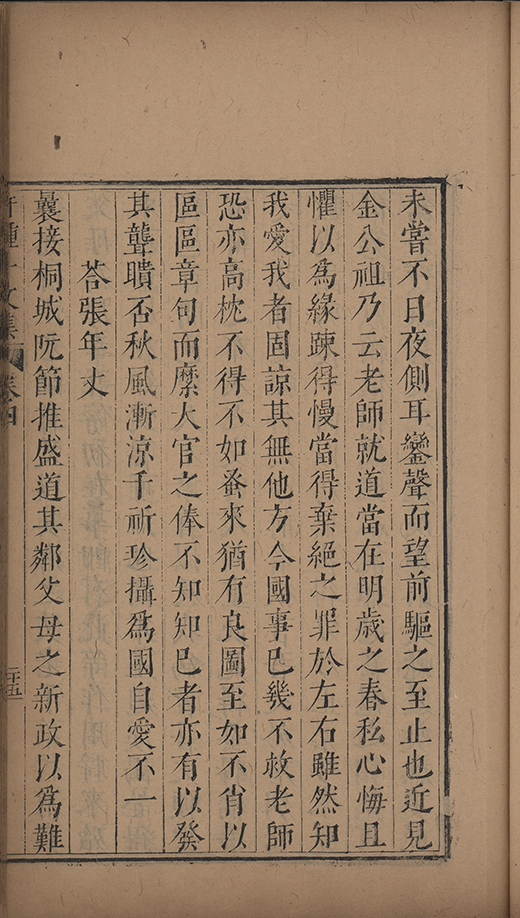 未嘗不日夜側耳鑾聲而望前驅之至止也近見
金公祖乃云老師就道當在明歲之春私心悔且
懼以為緣踈得慢當得棄絕之罪於左右雖然知
我愛我者固諒其無他方今國事已幾不救老師
恐亦高枕不得不如蚤來猶有良圖至如不肖以
區區章句而縻大官之俸不知知已者亦有以發
其聾聵否秋風漸涼千祈珍攝爲國自愛不一
荅張年丈
曩接桐城阮節推盛道其鄰父母之新政以爲難
文集
卷四
二十五